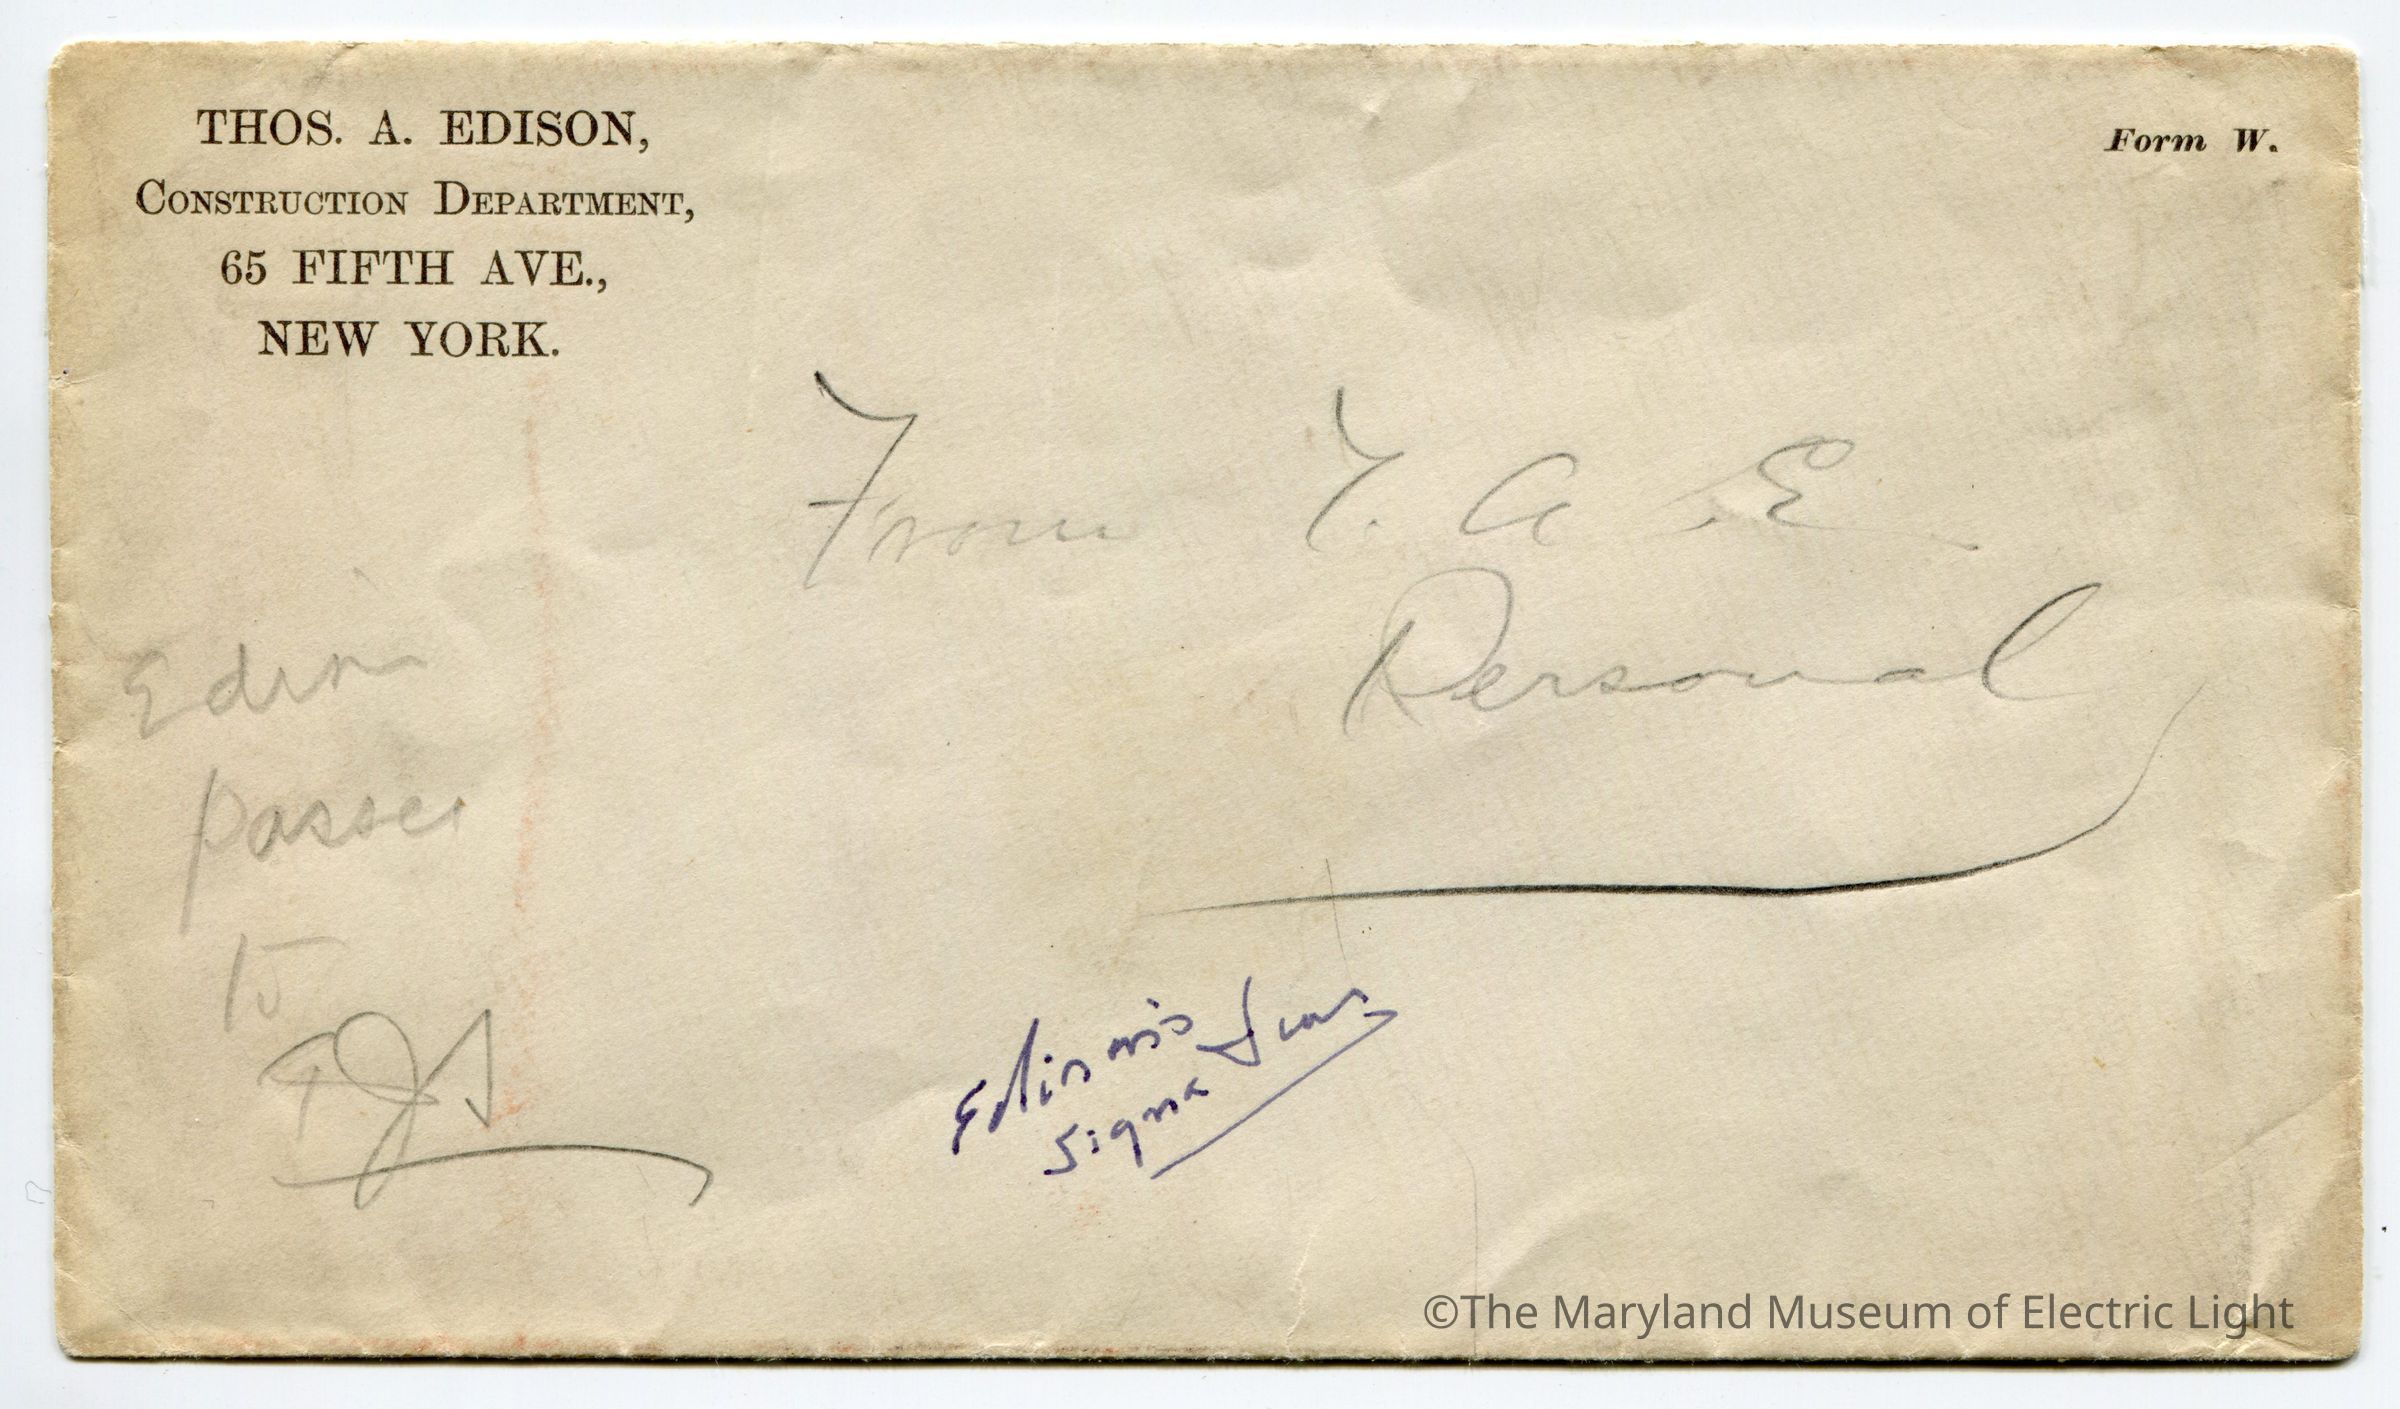 THOS. A. EDISON,
CONSTRUCTION DEPARTMENT,
65 FIFTH AVE.,
NEW YORK.
Form W.
From T. A. E
Personal
Edison
passes
to
FJS
Edison's
©The Maryland Museum of Electric Light